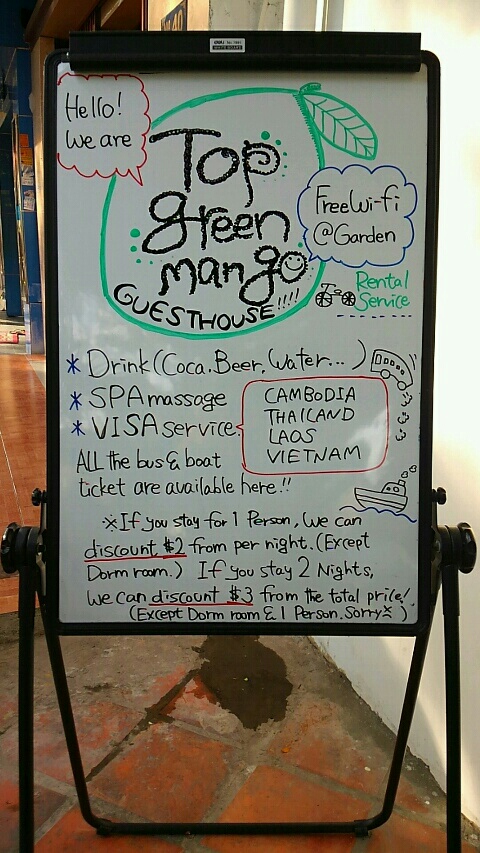 Hello!
We are
Top
green
mango
GUESTHOUSE!!!!
Free Wi-fi
@Garden
Rental
Service
* Drink (Coca, Beer, Water... )
* SPA massage
* VISA service
CAMBODIA
THAILAND
LAOS
VIETNAM
ALL the bus & boat
ticket are available here!!
※If you stay for 1 Person, We can
discount $2 from per night. (Except
Dorm room.) If you stay 2 Nights,
We can discount $3 from the total price!
(Except Dorm room & 1 Person. Sorry )